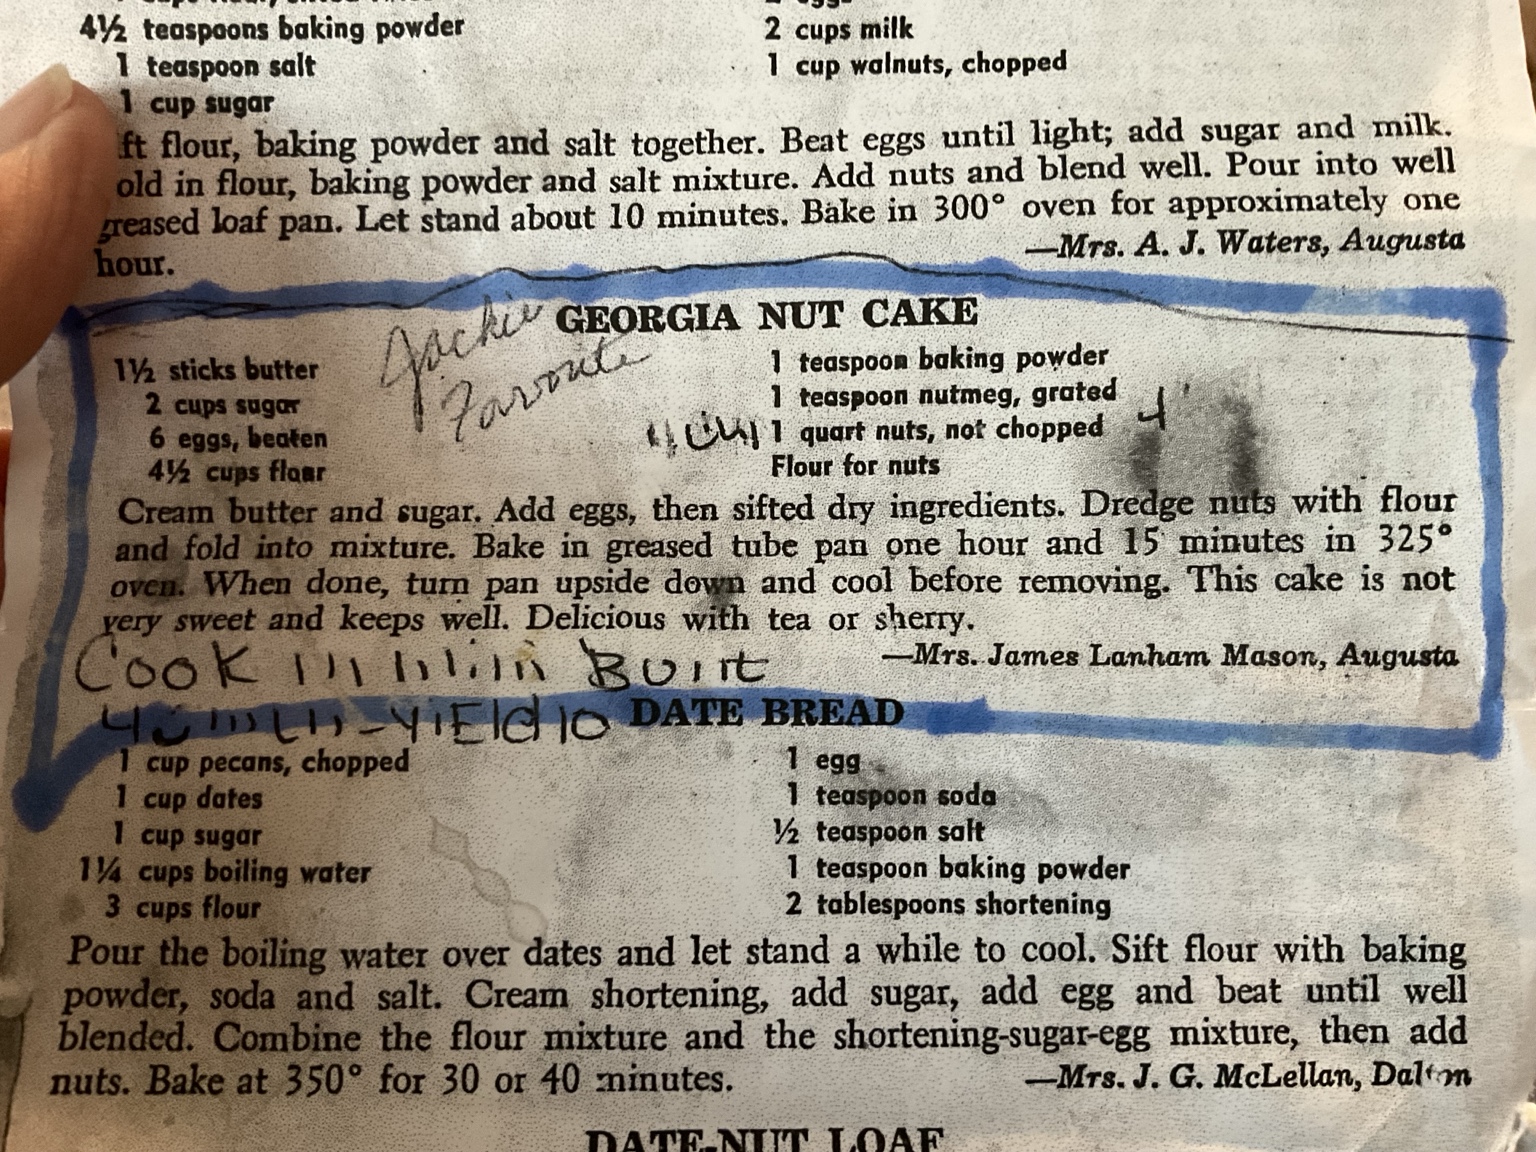 4½ teaspoons baking powder
1 teaspoon salt
1 cup sugar
2 cups milk
1 cup walnuts, chopped
ft flour, baking powder and salt together. Beat eggs until light; add sugar and milk.
old in flour, baking powder and salt mixture. Add nuts and blend well. Pour into well
greased loaf pan. Let stand about 10 minutes. Bake in 300° oven for approximately one
hour.
—Mrs. A. J. Waters, Augusta
GEORGIA NUT CAKE
Jackie
Favorite
1½ sticks butter
2 cups sugar
6 eggs, beaten
4½ cups flour
1 teaspoon baking powder
1 teaspoon nutmeg, grated
1 quart nuts, not chopped
Flour for nuts
Cream butter and sugar. Add eggs, then sifted dry ingredients. Dredge nuts with flour
and fold into mixture. Bake in greased tube pan one hour and 15 minutes in 325°
oven. When done, turn pan upside down and cool before removing. This cake is not
very sweet and keeps well. Delicious with tea or sherry.
—Mrs. James Lanham Mason, Augusta
Cook
DATE BREAD
1 cup pecans, chopped
1 cup dates
1 cup sugar
1¼ cups boiling water
3 cups flour
1 egg
1 teaspoon soda
½ teaspoon salt
1 teaspoon baking powder
2 tablespoons shortening
Pour the boiling water over dates and let stand a while to cool. Sift flour with baking
powder, soda and salt. Cream shortening, add sugar, add egg and beat until well
blended. Combine the flour mixture and the shortening-sugar-egg mixture, then add
nuts. Bake at 350° for 30 or 40 minutes.
—Mrs. J. G. McLellan, Dalton
DATE-NUT LOAF